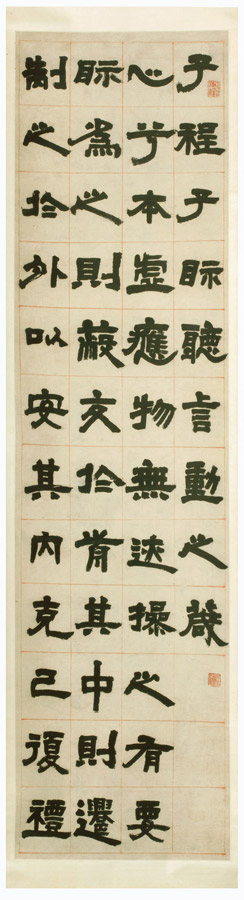 子程子眎聽言動之箴
心兮本虛應物無迹操之有要
眎為之則蔽交於前其中則遷
制之於外以安其內克己復禮